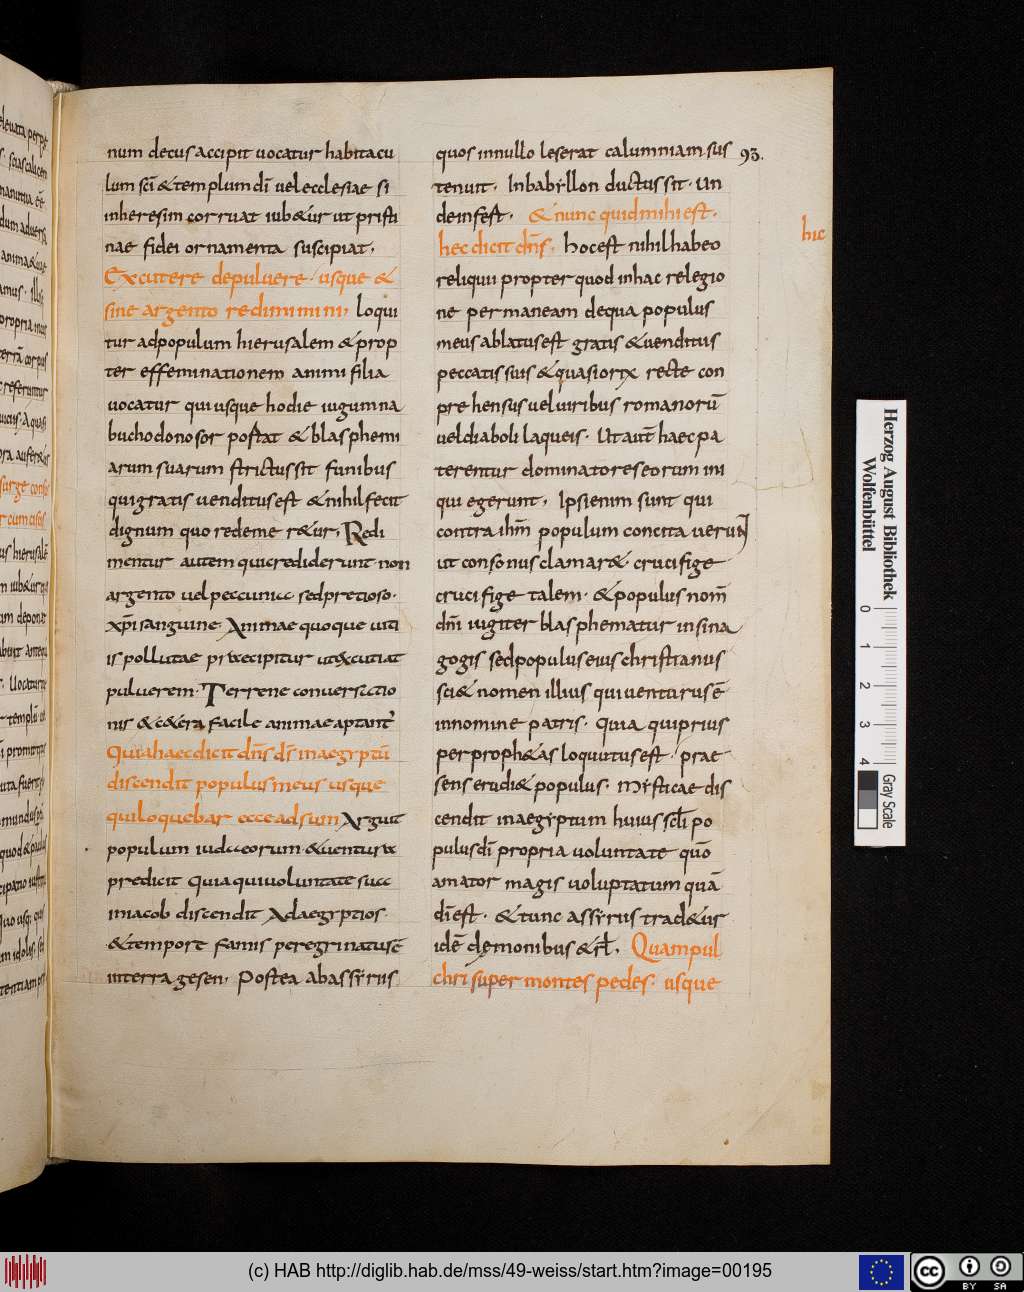 num decus accipit uocatur habitacu
lum sc̄i & templum dī uel ecclesiae si
inheresim corruat iub&ur ut pristi
nae fidei ornamenta suscipiat.
Excutere depuluere. usque &
sine argento redimimini. loqui
tur adpopulum hierusalem & prop
ter effeminationem animi filia
uocatur qui usque hodie iugum na
buchodonosor postat & blasphemi
arum suarum strictus sit funibus
qui gratis uenditus est & nihil fecit
dignum quo redeme r&ur. Redi
mentur autem qui crediderunt non
argento uel peccunia sed pretioso.
xp̄i sanguine. Animae quoque uiti
is pollutae praecipitur ut excutiat
puluerem. Terrene conuersatio
nis & c&era facile animae aptant̄
Quia haec dicit dn̄s dī in aegyptū
discendit populus meus usque
qui loquebar ecce adsum Arguit
populum iudaeorum & uentura
predicit quia qui uoluntate sua
iniacob discendit Adaegyptios.
& tempore famis peregrinatus ē
interra gesen. Postea abassyriis
quos innullo leserat calumniam sus
tenuit. Inbabyllon ductus sit. Un
deinfest. & nunc quid mihi est.
hec dicit dn̄s. hoc est nihil habeo
reliquii propter quod inhac relegio
ne permaneam dequa populus
meus ablatus est gratis & uenditus
peccatis suis & quasi oryx recte con
prehensus uel uiribus romanorū
uel diaboli laqueis. Ut aut̄ haec pa
terentur dominatores eorum ini
qui egerunt. Ipsi enim sunt qui
contra ih̄m populum concita uerunt
ut consonus clamar& crucifige
crucifige talem. & populus nom̄
dm̄ iugiter blasphematur insina
gogis sed populus eius christianus
sci& nomen illius qui uenturus ē
innomine patris. Quia qui prius
per proph&as loquutus est. prae
sens erudi& populus. Mysticae dis
cendit inaegyptum huius scl̄i po
pulus dī propria uoluntate quō
amator magis uoluptatum quā
dī est. & tunc assyrus trad&ur
idē demonibus & rl̄. Quam pul
chri super montes pedes. usque
93.
hic
Herzog August Bibliothek
Wolfenbüttel
0 1 2 3 4
Gray Scale
(c) HAB http://diglib.hab.de/mss/49-weiss/start.htm?image=00195
cc BY SA